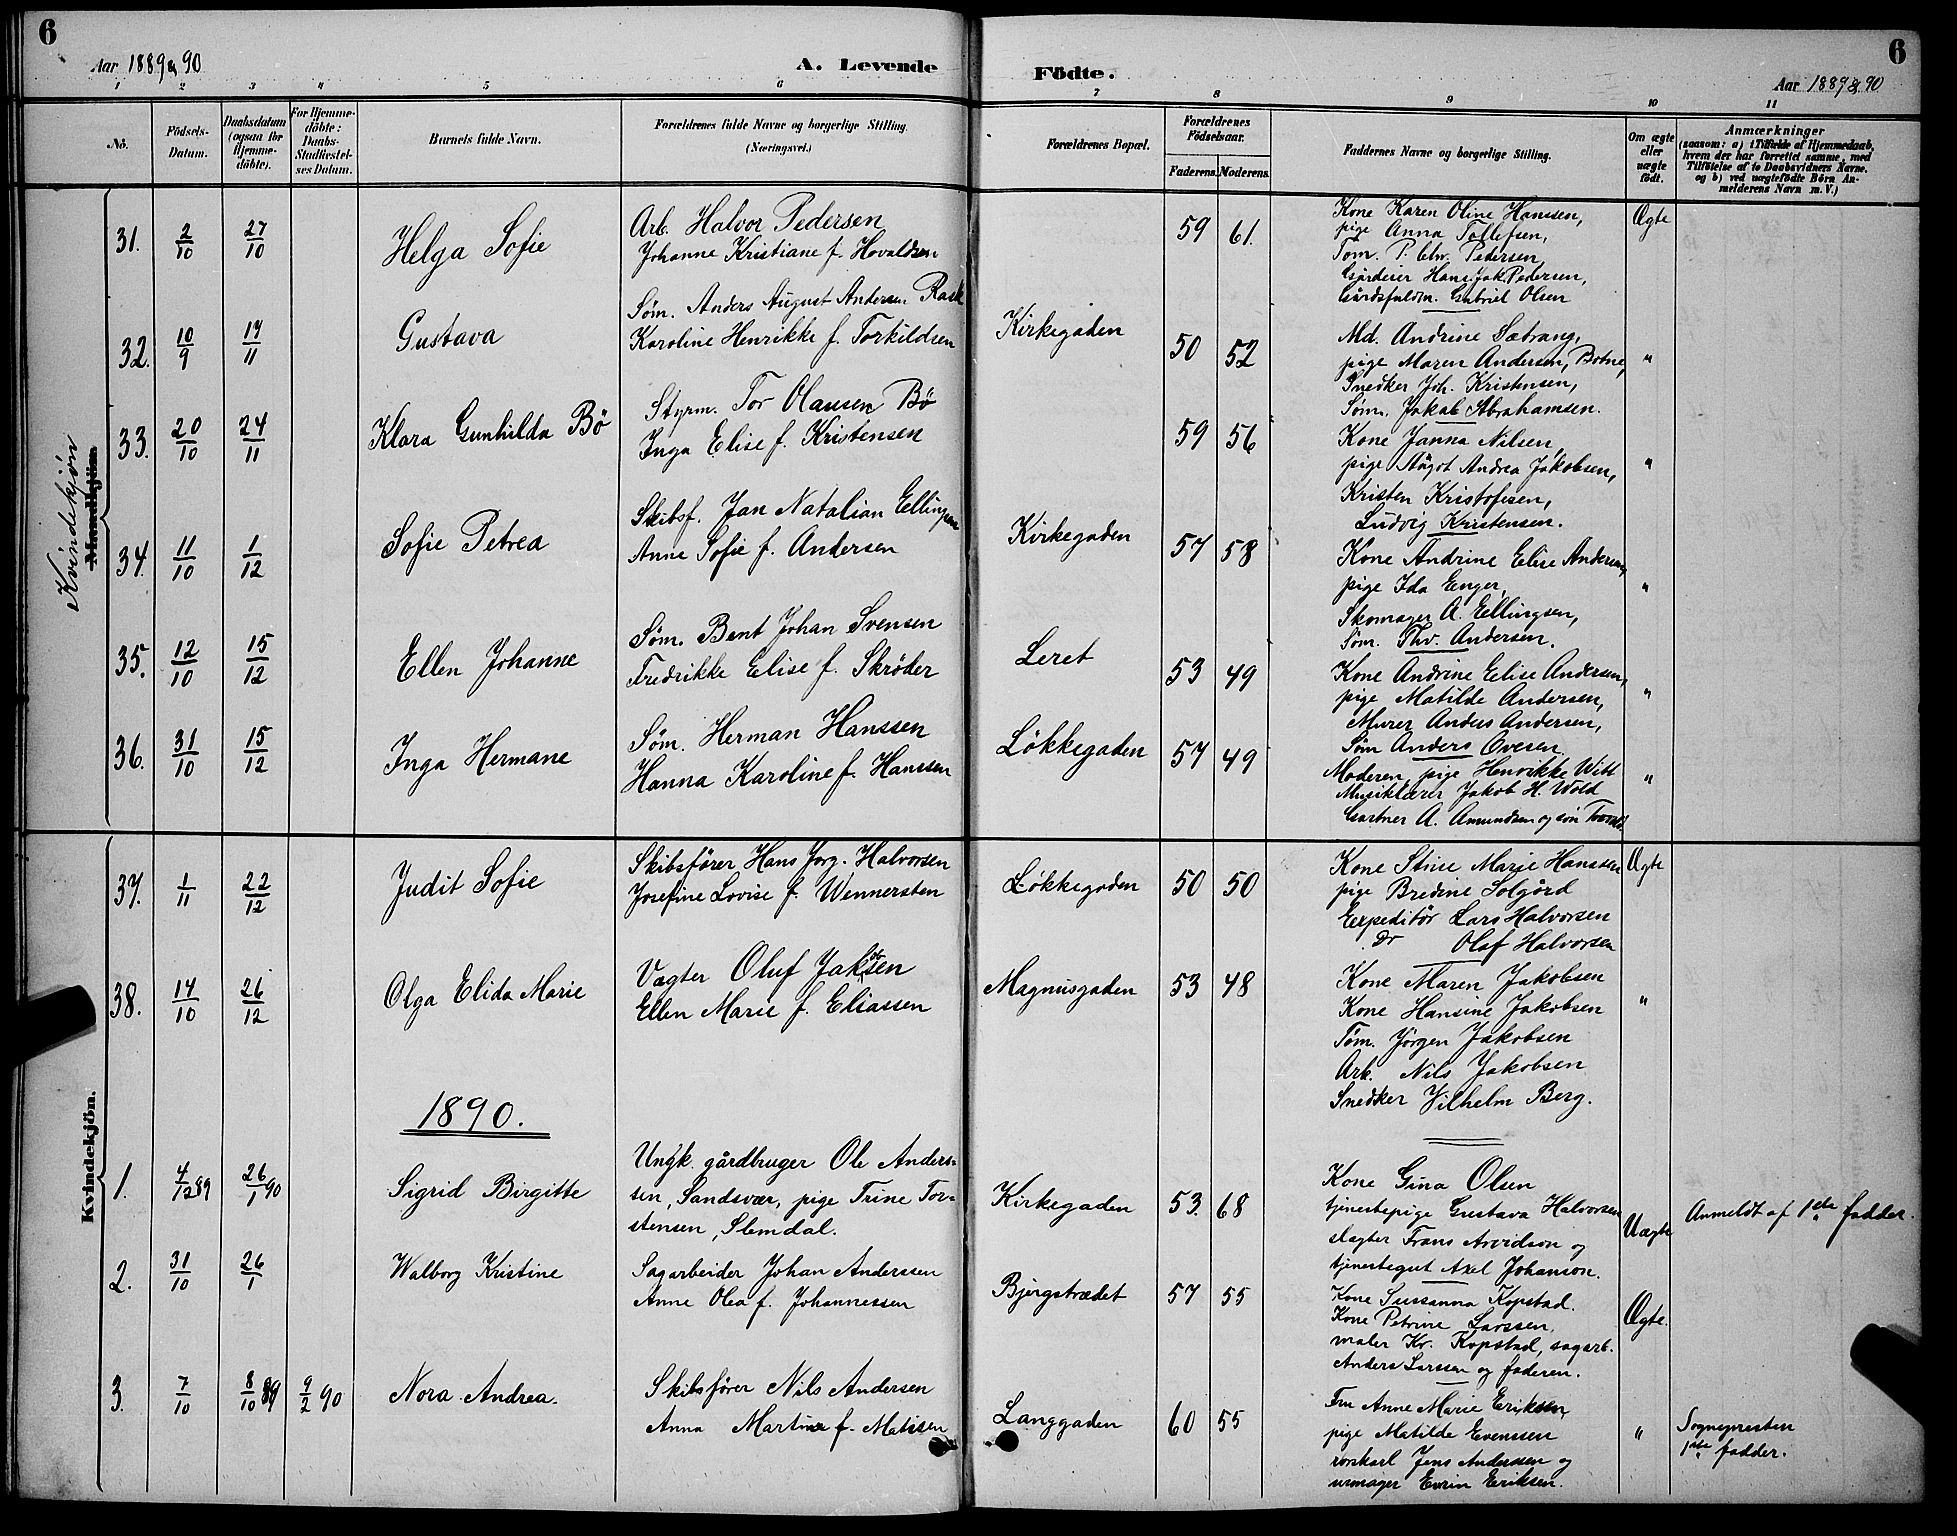 6
Aar 1889 & 90
A. Levende
Födte.
6
Aar 1889 & 90
1 2 3 4 5 6 7 8 9 10 11
No.
Födsels-Datum.
Daabsdatum (ogsaa for Hjemme-döbte).
For Hjemme-döbte: Daabs-Stadfæstel-ses Datum.
Barnets fulde Navn.
Forældrenes fulde Navne og borgerlige Stilling. (Næringsvei.)
Forældrenes Bopæl.
Forældrenes Födselsaar.
Faderens. Moderens.
Faddernes Navne og borgerlige Stilling.
Om ægte eller uægte födt.
Anmærkninger
(saasom: a) i Tilfælde af Hjemmedaab, hvem der har forrettet samme, med Tilföielse af to Daabsvidners Navne. og b) ved uægtefödte Börn An-melderens Navn m. V.)
Kvindekjön
Mandkjön
31. 2/10 27/10 Helga Sofie
Arb. Halvor Pedersen
Johanne Kristiane f. Hovaldsen
59 61.
Kone Karen Oline Hanssen,
pige Anna Tollefsen,
Tøm. P. Chr. Pedersen,
Gårdeier Hans Jak. Pedersen,
Gårdsfuldm. Gabriel Olsen
Ægte
32. 10/9 17/11 Gustava
Søm. Anders August Andersen Rask
Karoline Henrikke f. Torkildsen
Kirkegaden
50 52
Md. Andrine Sætrang,
pige Maren Andersen, Botne,
Snedker Joh. Kristensen,
Søm. Jakob Abrahamsen.
"
33. 20/10 24/11 Klara Gunhilda Bö
Styrm. Tor Olausen Bö
Inga Elise f. Kristensen
59 56
Kone Janna Nilsen,
pige Aågot Andrea Jakobsen,
Kristen Kristofesen,
Ludvig Kristensen.
"
34. 11/10 1/12 Sofie Petrea
Skibsf. Jan Natalian Ellingsen
Anne Sofie f. Andersen
Kirkegaden
57 58
Kone Andrine Elise Andersen,
pige Ida Enger,
Skomager A. Ellingsen,
Søm. Thv. Andersen.
"
35. 12/10 15/12 Ellen Johanne
Søm. Bent Johan Svensen
Fredrikke Elise f. Skröder
Leret
53 49
Kone Andrine Elise Andersen,
pige Matilde Andersen,
Murer Anders Andersen,
Søm Anders Ovesen
"
36. 31/10 15/12 Inga Hermane
Søm. Herman Hanssen
Hanna Karoline f. Hanssen
Løkkegaden
57 49
Moderen, pige Henrikke Witt
Musiklærer Jakob H. Wold
Gartner A. Amundsen og søn
"
37. 1/11 22/12 Judit Sofie
Skibsfører Hans Jørg. Halvorsen
Josefine Lovise f. Wennersten
Løkkegaden
50 50
Kone Stine Marie Hanssen
pige Bredine Solgård
Expeditör Lars Halvorsen
Dr Olaf Halvorsen
Ægte
38. 14/10 26/12 Olga Elida Marie
Vægter Oluf Jakobsen
Ellen Marie f. Eliassen
Magnusgaden
53 48
Kone Maren Jakobsen
Kone Hansine Jakobsen
Tøm. Jörgen Jakobsen
Arb. Nils Jakobsen
Snedker Vilhelm Berg.
"
Kvindekjön.
1890.
1. 4/12 89 26/1 90 Sigrid Birgitte
Ungk. gårdbruger Ole Anders-
sen, Sandsvær, pige Trine Tor-
stensen, Slemdal.
Kirkegaden
53. 68
Kone Gina Olsen
tjenestepige Gustava Halvorsen
slagter Frans Arvidson og
tjenestegut Axel Johanson.
Uægte
Anmeldt af 1ste fadder.
2. 31/10 26/1 Walborg Kristine
Sagarbeider Johan Anderssen
Anne Olea f. Johannessen
Bjergstrædet
57 55
Kone Sussanna Kopstad.
Kone Petrine Larssen,
maler Kr. Kopstad, sagarb.
Anders Larssen og faderen.
Ægte.
3. 7/10 8/10 89 9/2 90 Nora Andrea.
Skibsfører Nils Andersen
Anna Martine f. Matisen
Langgaden
60 55
Fru Anne Marie Eriksen,
pige Matilde Evenssen
rorskarl Jens Anderssen og
urmager Eriksen.
"
Sognepresten
1ste fadder.